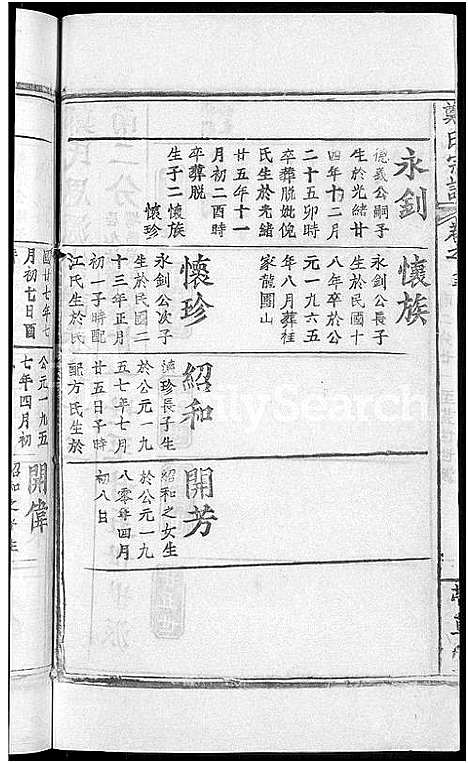 鄭氏宗譜
永釗
德義公嗣子
生於光緒廿
四年十二月
二十五卯時
卒葬脱妣傀
氏生於光緒
廿五年十一
月初二酉時
卒葬脱
生子二 懷族
懷珍
懷族
永釗公長子
生於民國十
八年卒於公
元一九六五
年八月葬社
家龍團山
懷珍
永釗公次子
生於民國二
十三年正月
初一子時配
江氏生於民
國廿七年七
月初七日酉
紹和
懷珍長子生
於公元一九
五七年七月
廿五日子時
配方氏生於
公元一九五
七年四月初
開芳
紹和之女生
於公元一九
八零年四月
初八日
開偉
紹和之子生